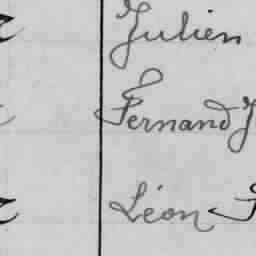 Julien
Fernand J
Léon